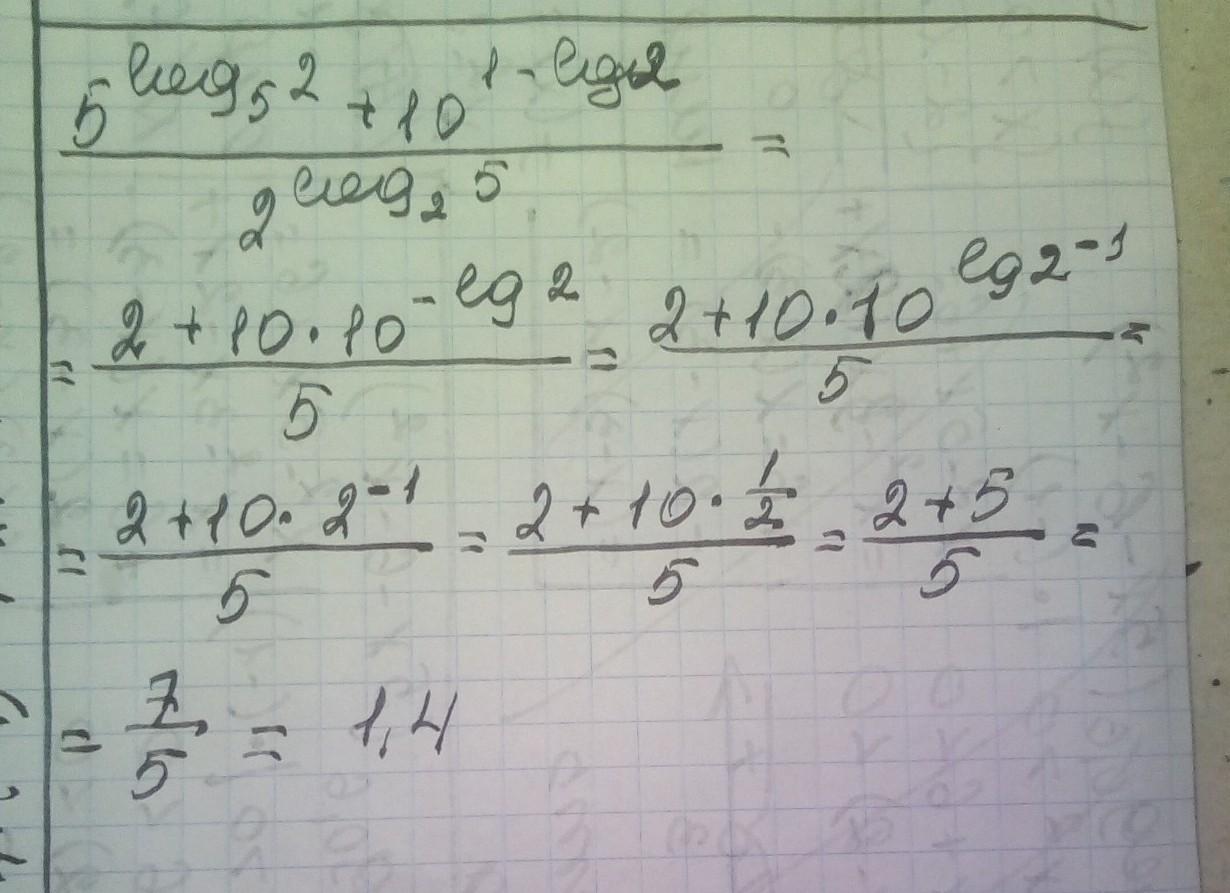 5^(log₅ 2) + 10^(1 - lg 2) / 2^(log₂ 5) =
= (2 + 10 · 10^(-lg 2)) / 5 = (2 + 10 · 10^(lg 2⁻¹)) / 5 =
= (2 + 10 · 2⁻¹) / 5 = (2 + 10 · 1/2) / 5 = (2 + 5) / 5 =
= 7/5 = 1,4